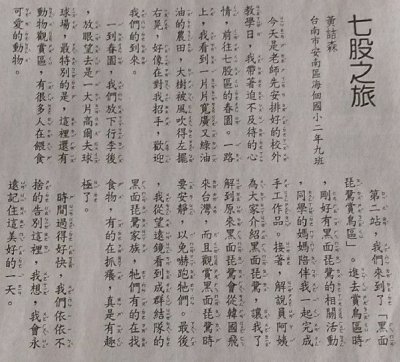 七股之旅
黃喆森
台南市安南區海佃國小二年九班
今天是老師先安排好的校外
教學日，我帶著迫不及待的心
情，前往七股區的春園。一路
上，我看到一片片寬廣又綠油
油的農田，大樹被風吹得左擺
右晃，好像在對我招手，歡迎
我們的到來。
一到春園，我們放下行李後
，放眼望去是一大片高爾夫球
球場，最特別的是，這裡還有
動物觀賞區，有很多人在餵食
可愛的動物。
第二站，我們來到了「黑面
琵鷺賞鳥區」。進去賞鳥區時
，剛好有黑面琵鷺的相關活動
，同學的媽媽陪伴我一起完成
手工作品。接著，解說員阿姨
為大家介紹黑面琵鷺，讓我了
解到原來黑面琵鷺會從韓國飛
來台灣，而且觀賞黑面琵鷺時
要安靜，以免嚇跑牠們。最後
，我從望遠鏡看到成群結隊的
黑面琵鷺家族，牠們有的在找
食物，有的在抓癢，真是有趣
極了。
時間過得好快，我們依依不
捨的告別這裡，我想，我會永
遠記住這美好的一天。